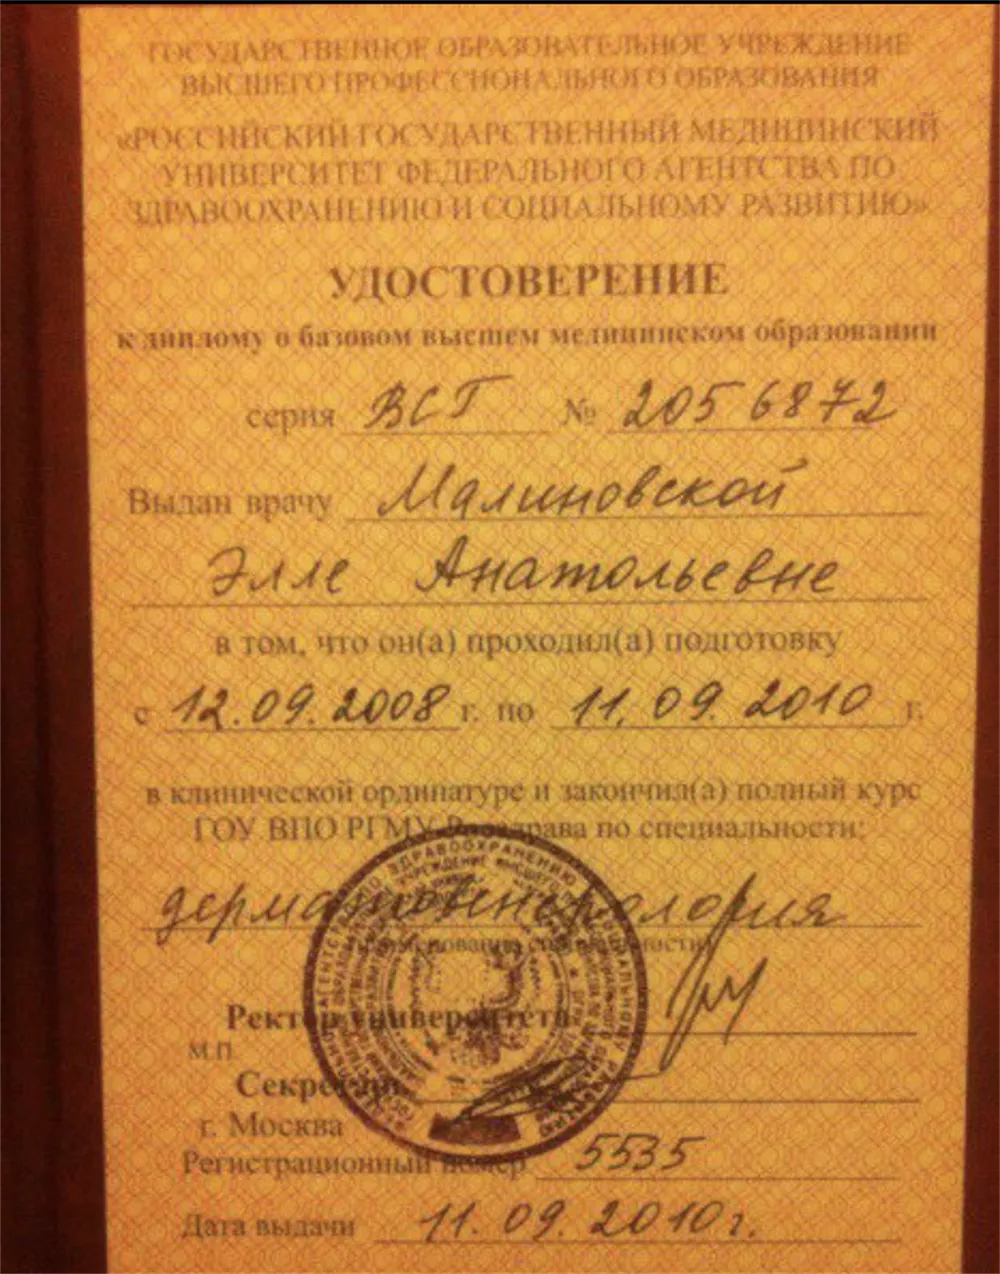 ГОСУДАРСТВЕННОЕ ОБРАЗОВАТЕЛЬНОЕ УЧРЕЖДЕНИЕ
ВЫСШЕГО ПРОФЕССИОНАЛЬНОГО ОБРАЗОВАНИЯ
«РОССИЙСКИЙ ГОСУДАРСТВЕННЫЙ МЕДИЦИНСКИЙ
УНИВЕРСИТЕТ ФЕДЕРАЛЬНОГО АГЕНТСТВА ПО
ЗДРАВООХРАНЕНИЮ И СОЦИАЛЬНОМУ РАЗВИТИЮ»
УДОСТОВЕРЕНИЕ
к диплому о базовом высшем медицинском образовании
серия ВСГ № 2056872
Выдан врачу Малиновской
Элле Анатольевне
в том, что он(а) проходил(а) подготовку
с 12.09.2008 г. по 11.09.2010 г.
в клинической ординатуре и закончил(а) полный курс
ГОУ ВПО РГМУ Росздрава по специальности:
дерматовенерология
(наименование специальности)
Ректор университета
М.П.
Секретарь
г. Москва
Регистрационный номер 5535
Дата выдачи 11.09.2010г.